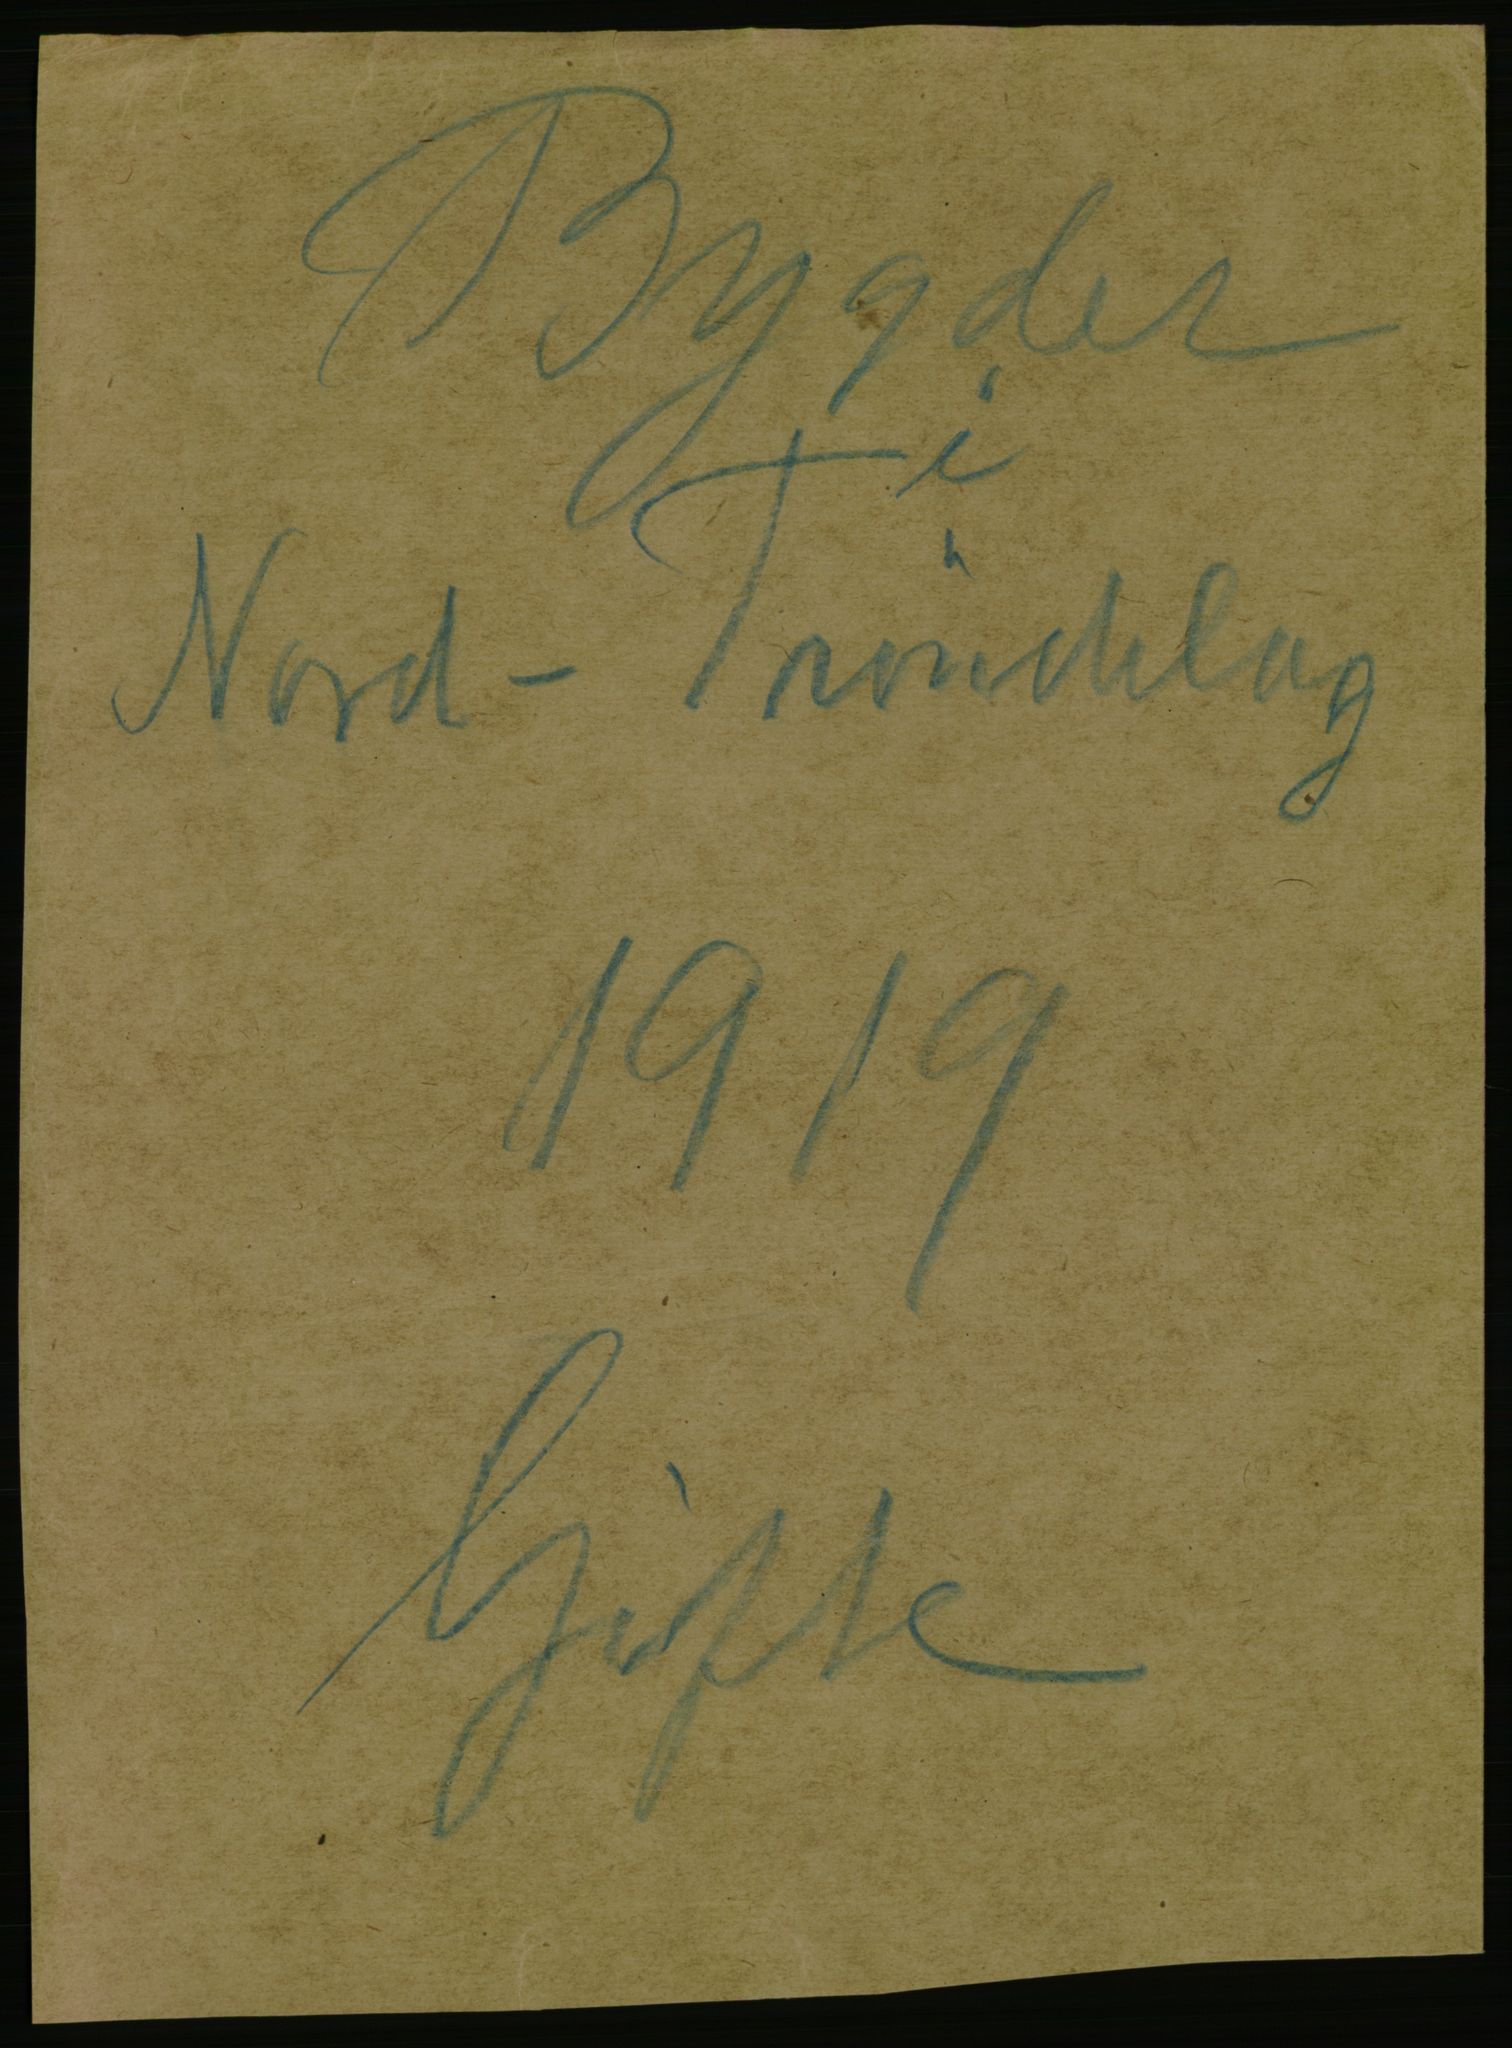 Bygder
i
Nord-Tröndelag
1919
Gifte